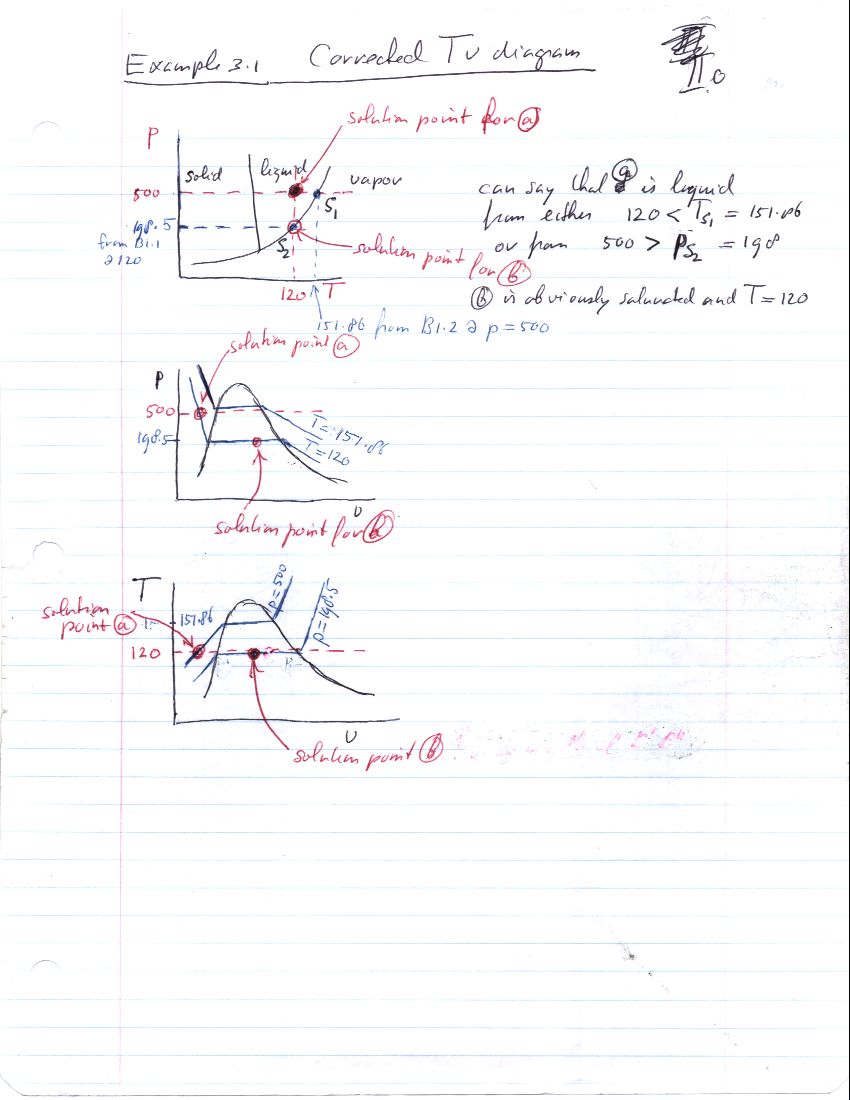 Example 3.1 Corrected Tv diagram
II.0
solution point for a
P
solid liquid vapor
500
S1
198.5
from B1.1
@ 120
S2
solution point for b
120 T
151.86 from B1.2 @ p = 500
can say that a is liquid
from either 120 < TS1 = 151.86
or from 500 > PS2 = 198
b is obviously saturated and T = 120
solution point a
P
500
198.5
T = 151.86
T = 120
v
solution point for b
T
p = 500
p = 198.5
solution
point a
151.86
120
v
solution point b